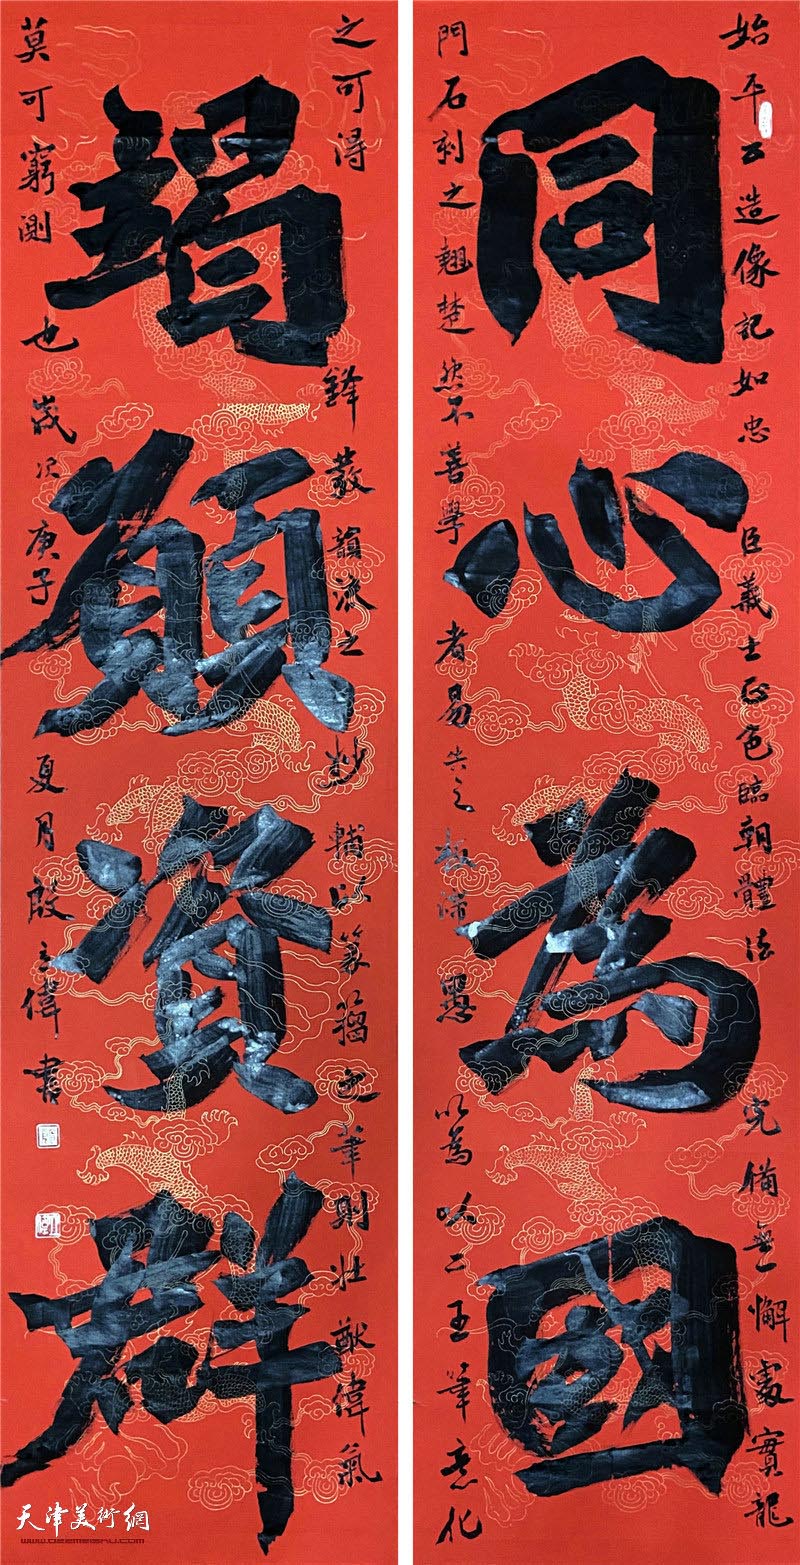 同心為國
始平公造像記如忠臣義士正色臨朝體法完備無懈處實龍
門石刻之翹楚然不善學者易失之板滯愚以為以二王筆意化
竭願資群
之可得鋒發韻流之妙輔以篆籀之筆則壯猷偉氣
莫可窮測也歲次庚子夏月之偉書
天津美術網